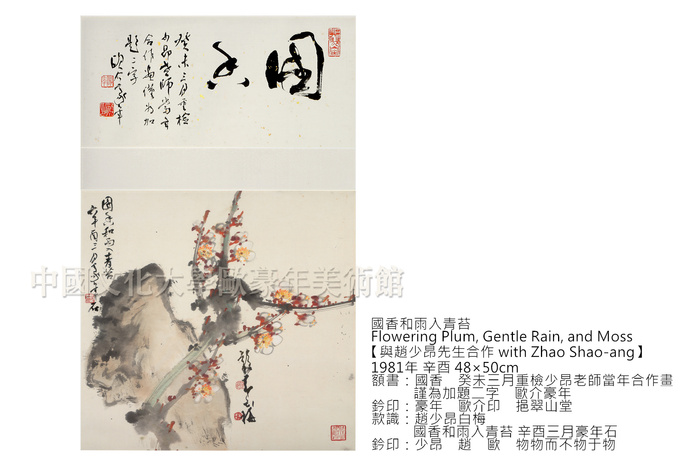 國香
癸未三月重檢
少昂老師當年
合作畫謹為加
題二字
國香和雨入青苔
中國文化大學歐豪年美術館
國香和雨入青苔
Flowering Plum, Gentle Rain, and Moss
【與趙少昂先生合作 with Zhao Shao-ang】
1981年 辛酉 48×50cm
額書：國香　癸未三月重檢少昂老師當年合作畫
謹為加題二字　歐介豪年
鈐印：豪年　歐介印　挹翠山堂
款識：趙少昂白梅
國香和雨入青苔 辛酉三月豪年石
鈐印：少昂　趙　歐　物物而不物于物